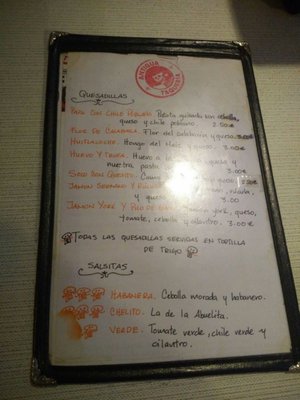 ANTIGUA TAQUERIA
QUESADILLAS
PAPA CON CHILE POBLANO. Papita guisada con cebolla,
queso y chile poblano. 2.00€
FLOR DE CALABAZA. Flor de calabaza y queso. 3.00€
HUITLACOCHE. Hongo del Maíz y queso. 3.00€
HUEVO Y Huevo a la y
nuestra pasta 3.00€
SOLO DON QUESITO. queso,
JAMON SERRANO Y
y queso 3.00
JAMON YORK Y york, queso,
tomate, cebolla y cilantro. 3.00€
TODAS LAS QUESADILLAS SERVIDAS EN TORTILLA
DE TRIGO
SALSITAS
HABANERA. Cebolla morada y habanero.
CHELITO. La de la Abuelita.
VERDE. Tomate verde, chile verde y
cilantro.